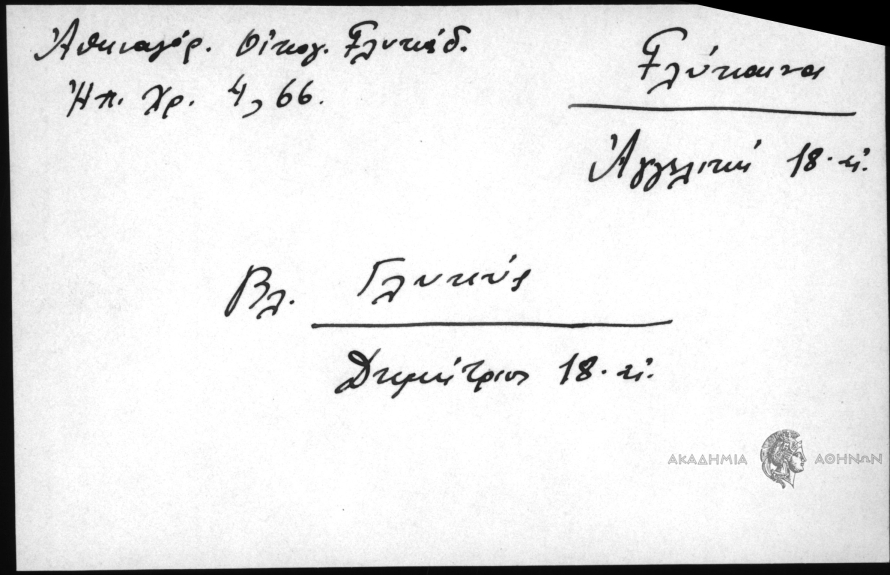 Ἀθηναγόρ. Οἰκογ. Γλυκάδ.
Ἠπ. Χρ. 4, 66.
Γλύκαινα
Ἀγγελικὴ 18. αἰ.
Βλ. Γλυκύς
Δημήτριος 18. αἰ.
ΑΚΑΔΗΜΙΑ ΑΘΗΝΩΝ